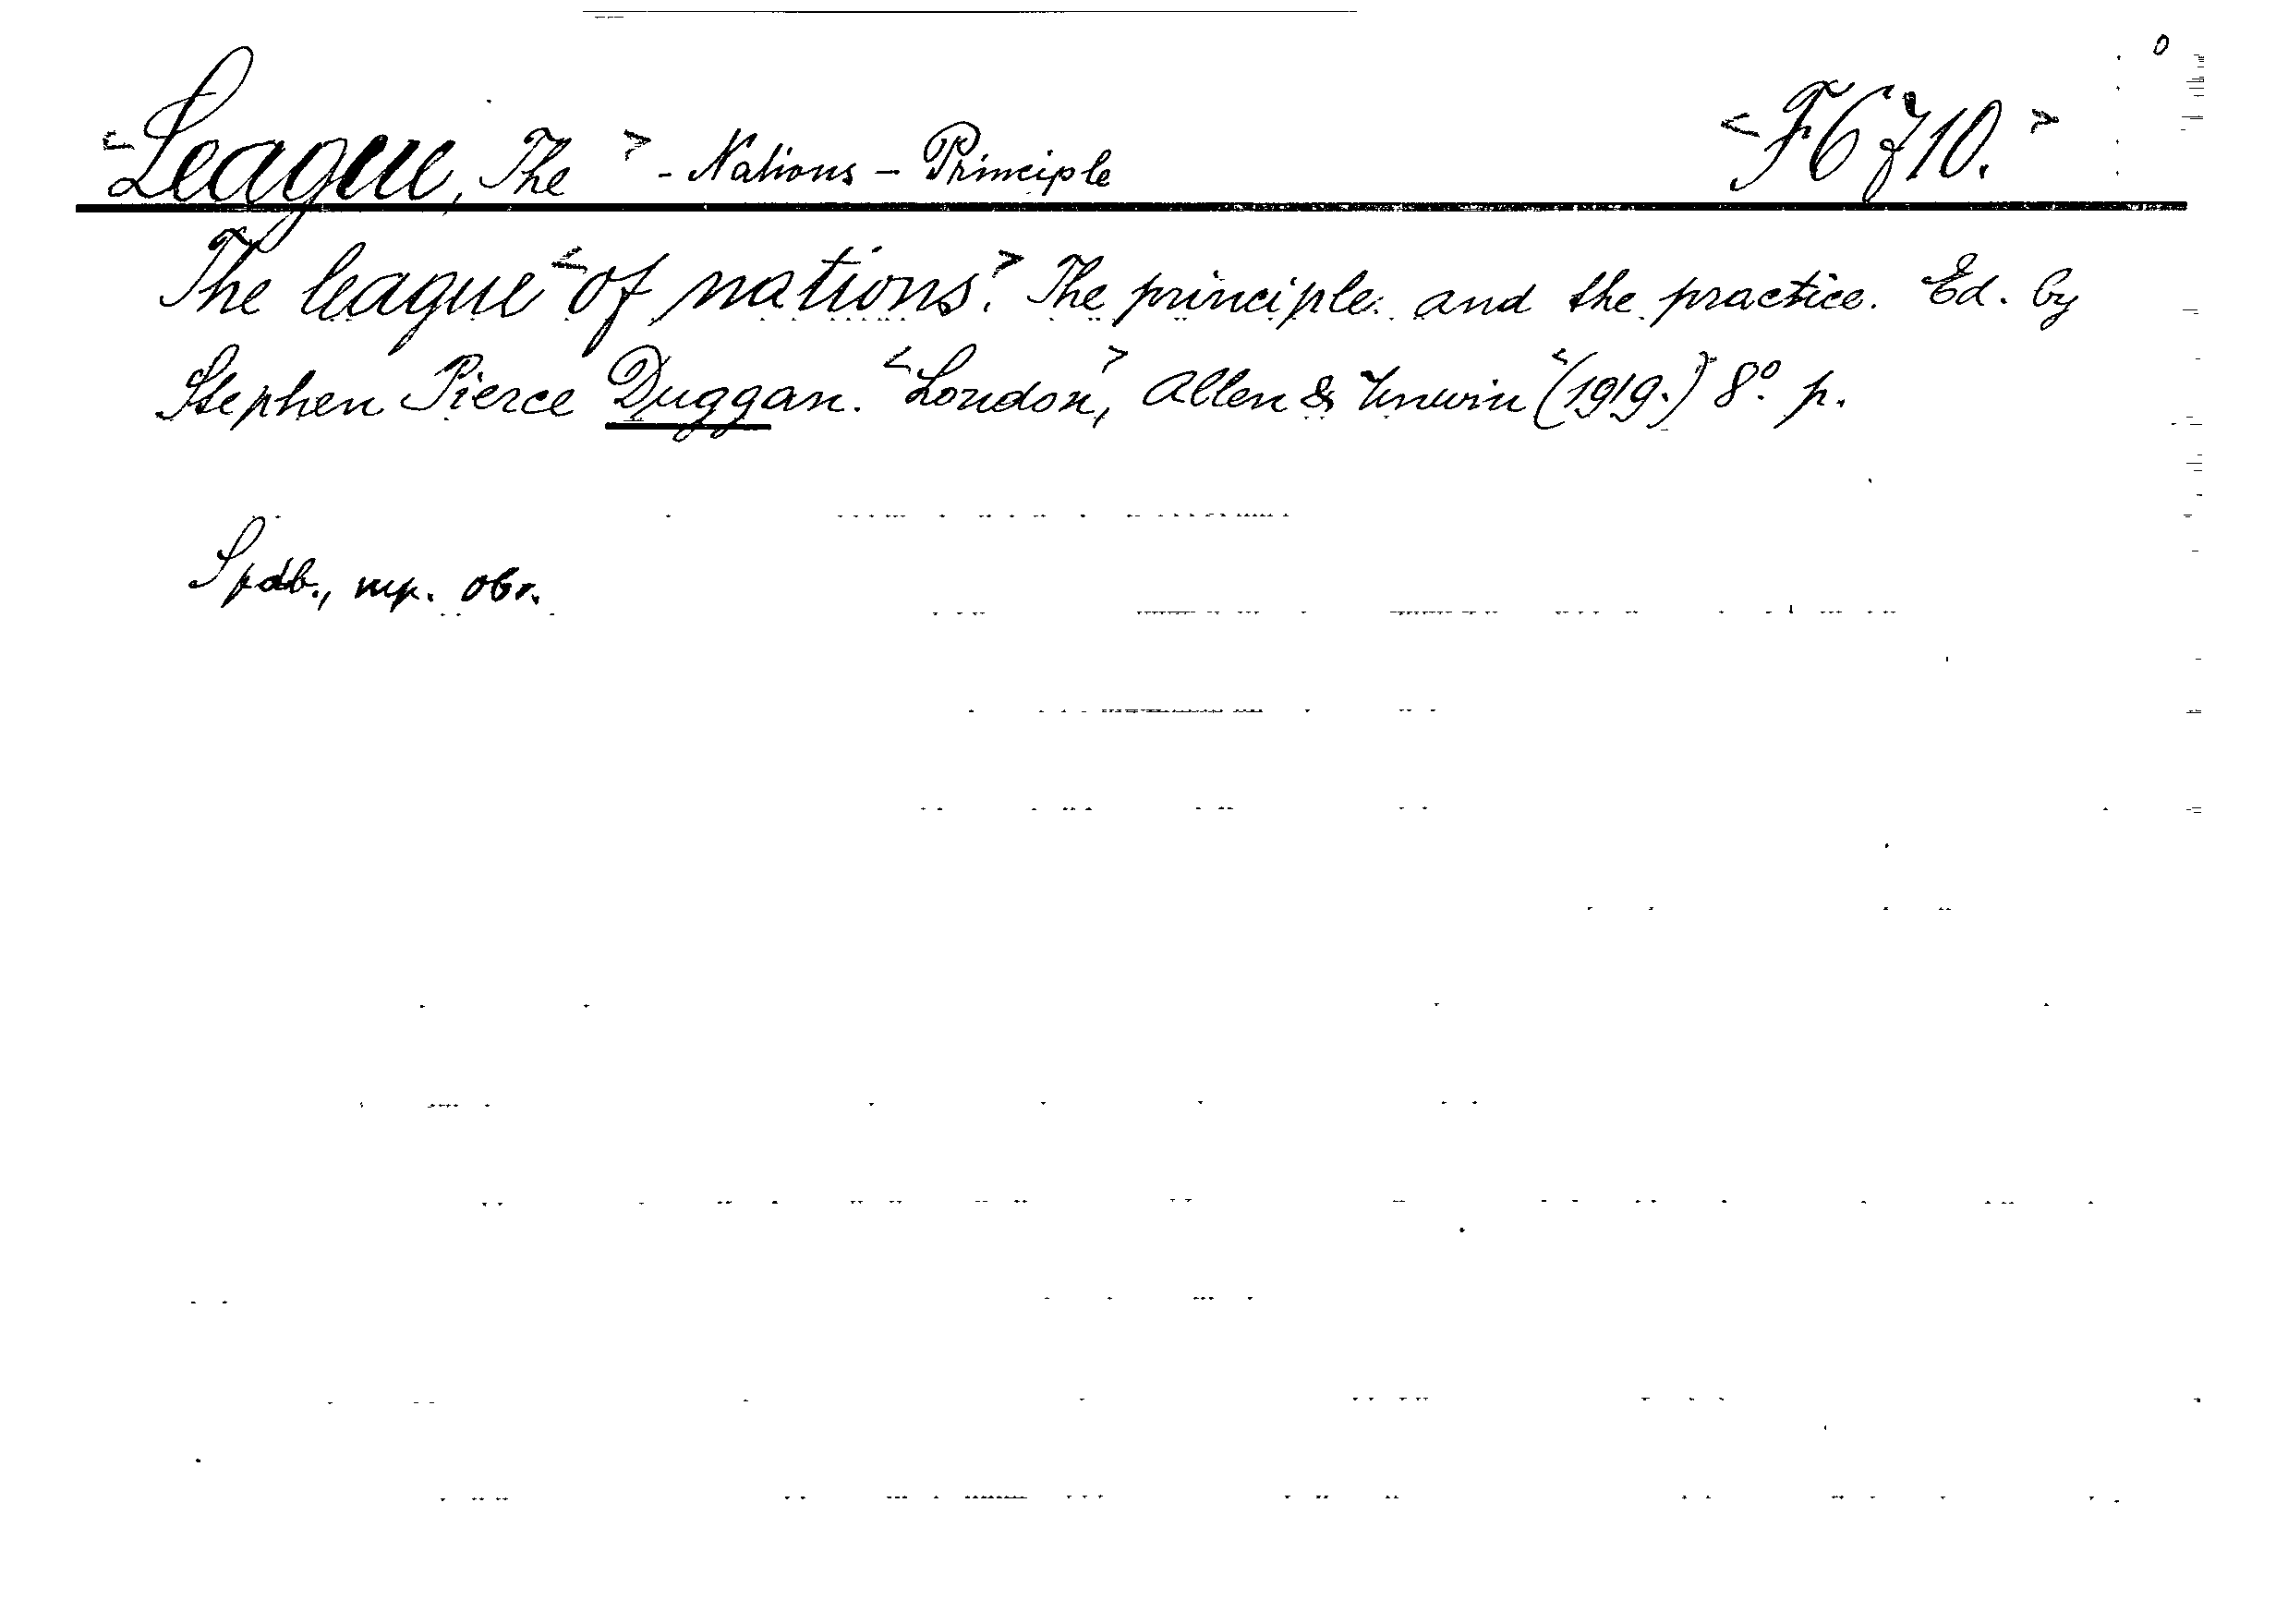 <League, The> - Nations - Principle <F6710.>
The league <of nations.> The principle and the practice. Ed. by
Stephen Pierce Duggan. <London,> Allen & Unwin <(1919.)> 8° p.